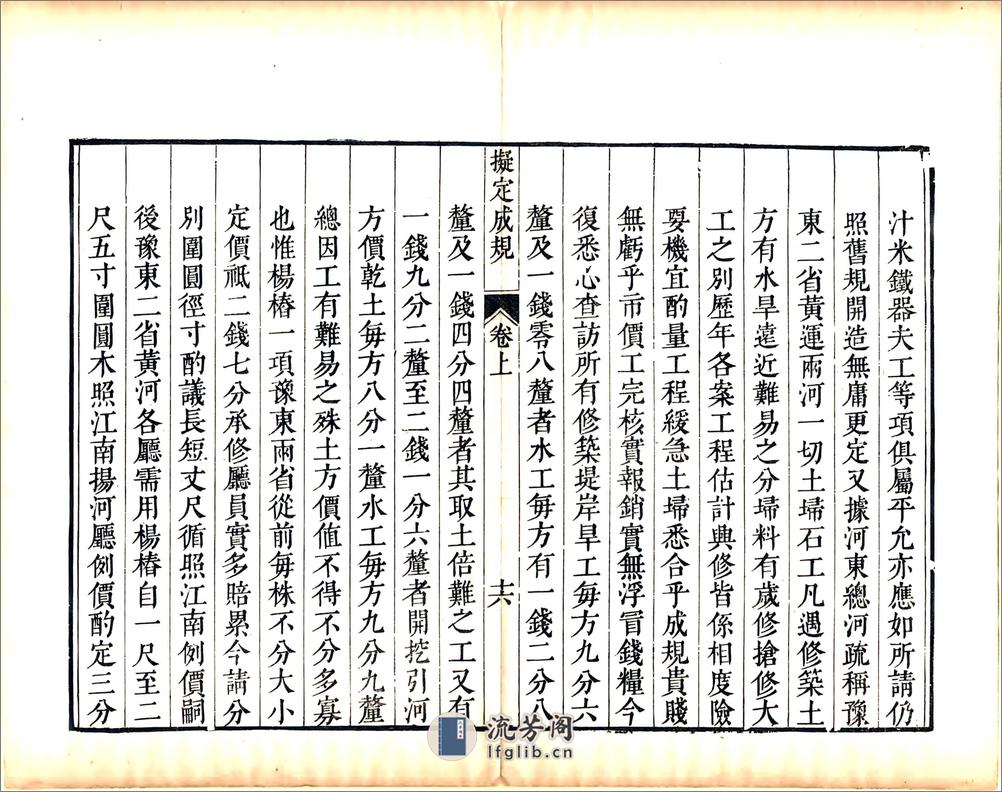 汁米鐵器夫工等項俱屬平允亦應如所請仍
照舊規開造無庸更定又據河東總河疏稱豫
東二省黃運兩河一切土埽石工凡遇修築土
方有水旱遠近難易之分埽料有歲修搶修大
工之別歷年各案工程估計興修皆係相度險
要機宜酌量工程緩急土埽悉合乎成規貴賤
無虧乎市價工完核實報銷實無浮冒錢糧今
復悉心查訪所有修築堤岸旱工每方九分六
釐及一錢零八釐者水工每方有一錢二分八
擬定成規
卷上
十六
釐及一錢四分四釐者其取土倍難之工又有
一錢九分二釐至二錢一分六釐者開挖引河
方價乾土每方八分一釐水工每方九分九釐
總因工有難易之殊土方價值不得不分多寡
也惟楊樁一項豫東兩省從前每株不分大小
定價祇二錢七分承修廳員實多賠累今請分
別圍圓徑寸酌議長短丈尺循照江南例價嗣
後豫東二省黃河各廳需用楊樁自一尺至二
尺五寸圍圓木照江南揚河廳例價酌定三分
流芳阁
lfglib.cn